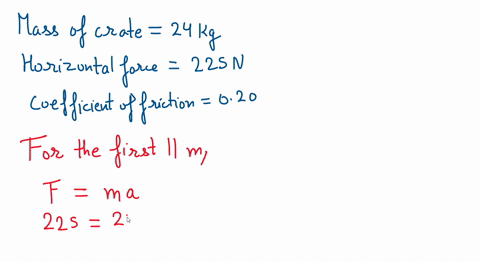 Mass of crate = 24 Kg
Horizontal force = 225 N
Coefficient of friction = 0.20
For the first 11 m,
F = ma
225 = 2